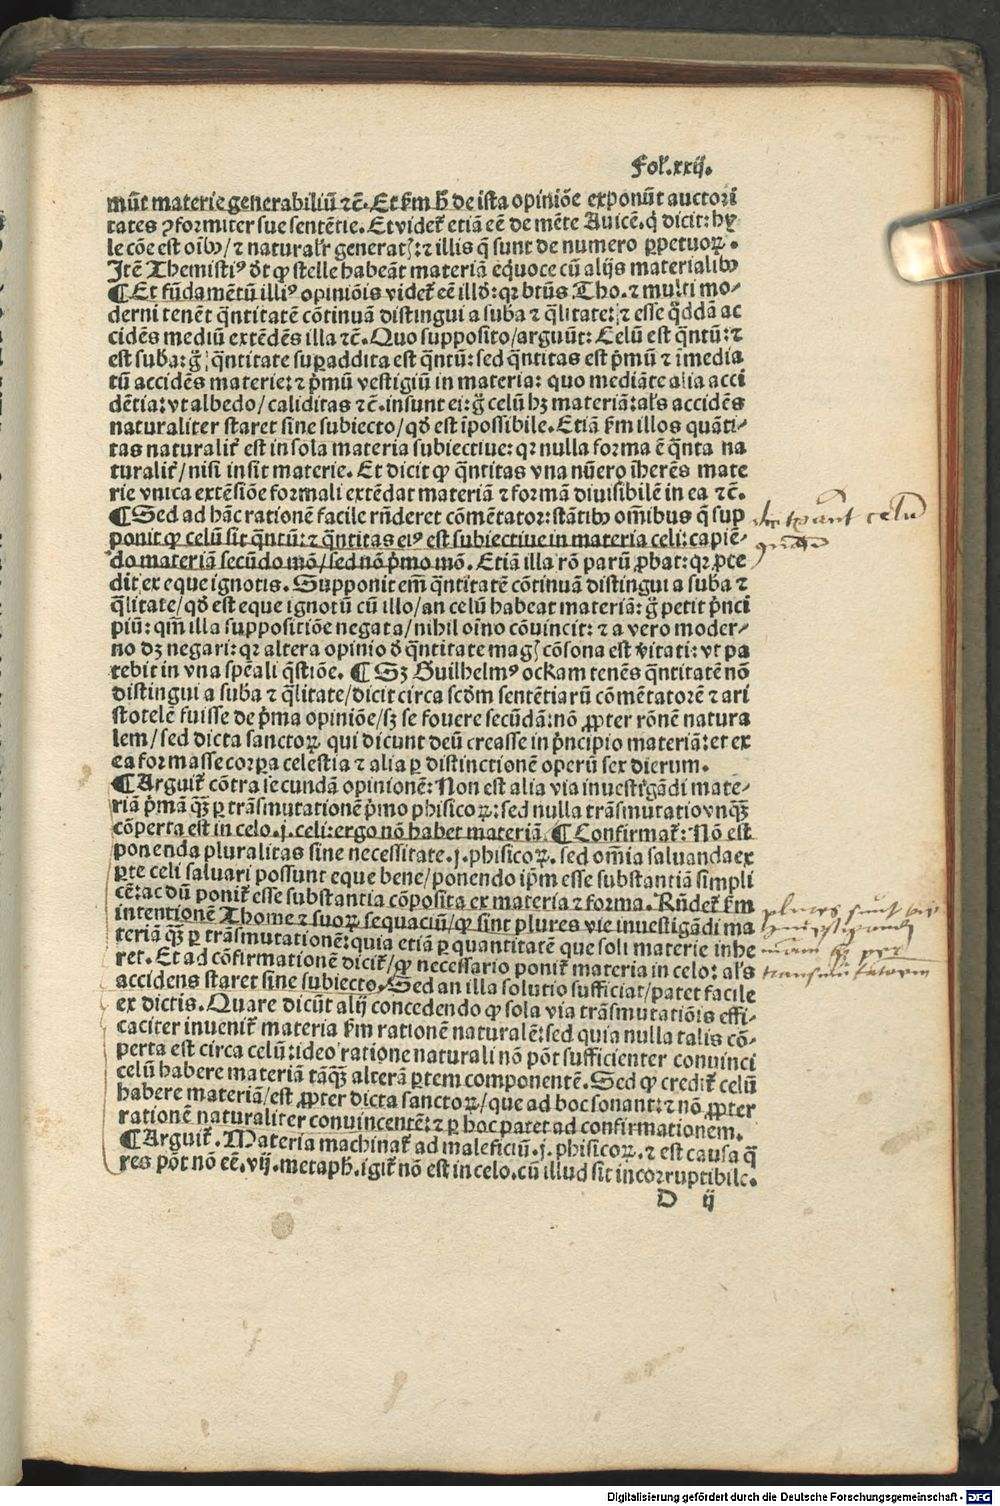 Fol.xxij.
mūt materie generabiliū ⁊c̄. Et ẜm h̄ de ista opiniōe exponūt auctori
tates ꝯformiter sue sentētie. Et videt᷑ etiā eē de mēte Auicē. q̇ dicit: hy
le cōe est oīb⁹/ ⁊ naturalr̄ generat: ⁊ illis q̄ sunt de numero ꝑpetuoꝝ.
Itē Themisti⁹ d̄t ꝙ stelle habeāt materiā equoce cū alijs materialib⁹
¶ Et fūdamētū illi⁹ opiniōis videt᷑ eē illḋ: qꝛ btūs Tho. ⁊ multi mo-
derni tenēt q̄ntitatē cōtinuā distingui a suba ⁊ q̄litate: ⁊ esse q̇ddā ac
cidēs mediū extēdēs illa ⁊c̄. Quo supposito/arguūt: Celū est q̄ntū: ⁊
est suba: g̊ q̄ntitate suꝑaddita est q̄ntū: sed q̄ntitas est p̄mū ⁊ īmedia
tū accidēs materie: ⁊ p̄mū vestigiū in materia: quo mediāte alia acci
dētia: vt albedo/ caliditas ⁊c̄. insunt ei: g̊ celū hꝫ materiā: als̄ accidēs
naturaliter staret sine subiecto/ qḋ est īpossibile. Etiā ẜm illos quāti-
tas naturalit᷑ est in sola materia subiectiue: qꝛ nulla forma ē q̄nta na
turalit᷑/ nisi insit materie. Et dicit ꝙ q̄ntitas vna nūero īherēs mate
rie vnica extēsiōe formali extēdat materiā ⁊ formā diuisibilē in ea ⁊c̄.
¶ Sed ad hāc rationē facile rn̄deret cōmētator: stātib⁹ om̄ibus q̄ sup
ponit ꝙ celū sit q̄ntū: ⁊ q̄ntitas ei⁹ est subiectiue in materia celi: capiē-
do materiā secūdo mō/ sed nō p̄mo mō. Etiā illa rō parū ꝓbat: qꝛ ꝓce
dit ex eque ignotis. Supponit em̄ q̄ntitatē cōtinuā distingui a suba ⁊
q̄litate/ qḋ est eque ignotū cū illo/ an celū habeat materiā: g̊ petit p̄nci
piū: qm̄ illa suppositiōe negata/ nihil oīno cōuincit: ⁊ a vero moder-
no dꝫ negari: qꝛ altera opinio ḋ q̄ntitate mag cōsona est v̄itati: vt pa
tebit in vna spēali q̄stiōe. ¶ Sꝫ Guilhelm⁹ ockam tenēs q̄ntitatē nō
distingui a suba ⁊ q̄litate/ dicit circa scd̄m sentētiarū cōmētatorē ⁊ ari
stotelē fuisse de p̄ma opiniōe/ sꝫ se fouere secūdā: nō ꝓpter rōnē natura
lem/ sed dicta sanctoꝝ qui dicunt deū creasse in p̄ncipio materiā: et ex
ea formasse corꝑa celestia ⁊ alia ꝑ distinctionē operū sex dierum.
¶ Arguit᷑ cōtra secundā opinionē: Non est alia via inuestigādi mate-
riā p̄mā q̄ꝫ ꝑ trāsmutationē p̄mo phisicoꝝ: sed nulla trāsmutatio vnq̄ꝫ
cōperta est in celo .j. celi: ergo nō habet materiā. ¶ Confirmat᷑: Nō est
ponenda pluralitas sine necessitate .j. phisicoꝝ. sed om̄ia saluanda ex
ꝑte celi saluari possunt eque bene/ ponendo ip̄m esse substantiā simpli
cē: ac dū ponit᷑ esse substantia cōposita ex materia ⁊ forma. Rn̄det᷑ ẜm
intentionē Thome ⁊ suoꝝ sequaciū/ ꝙ sint plures vie inuestigādi ma
teriā q̄ꝫ ꝑ trāsmutationē: quia etiā ꝑ quantitatē que soli materie inhe
ret. Et ad cōfirmationē dicit᷑/ ꝙ necessario ponit᷑ materia in celo: als̄
accidens staret sine subiecto. Sed an illa solutio sufficiat/ patet facile
ex dictis. Quare dicūt alij concedendo ꝙ sola via trāsmutatiōis effi-
caciter inuenit᷑ materia ẜm rationē naturalē: sed quia nulla talis cō-
perta est circa celū: ideo ratione naturali nō pōt sufficienter conuinci
celū habere materiā tāq̄ꝫ alterā ꝑtem componentē. Sed ꝙ credit᷑ celū
habere materiā/ est ꝓpter dicta sanctoꝝ/ que ad hoc sonant: ⁊ nō ꝓpter
rationē naturaliter conuincentē: ⁊ ꝑ hoc patet ad confirmationem.
¶ Arguit᷑. Materia machinat᷑ ad maleficiū .j. phisicoꝝ. ⁊ est causa q̄
res pōt nō eē. vij. metaph. igit᷑ nō est in celo. cū illud sit incorruptibile.
D ij
celū
plures sunt
per
Digitalisierung gefördert durch die Deutsche Forschungsgemeinschaft - DFG